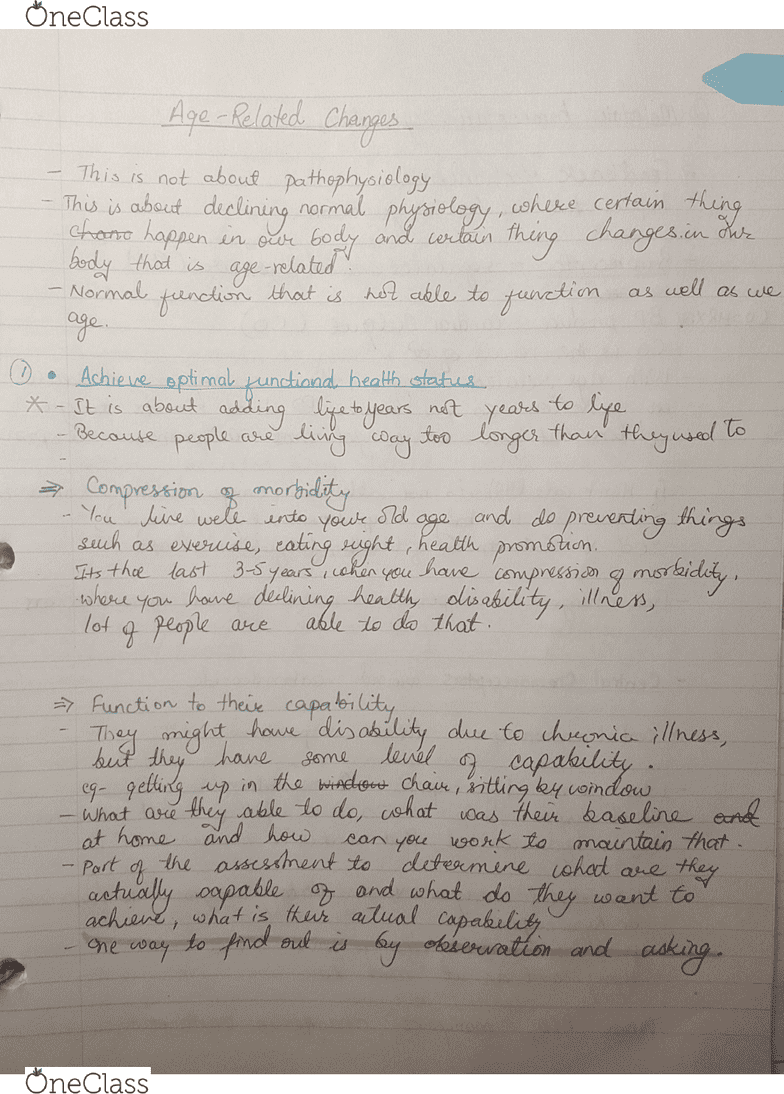 OneClass
Age-Related Changes
- This is not about pathophysiology
- This is about declining normal physiology, where certain thing
happen in our body and certain thing changes in our
body that is age-related.
- Normal function that is not able to function as well as we
age.
① • Achieve optimal functional health status
* - It is about adding life to years not years to life
- Because people are living way too longer than they used to
-
⇒ Compression of morbidity
- You live well into your old age and do preventing things
such as exercise, eating right, health promotion.
Its the last 3-5 years, when you have compression of morbidity,
where you have declining health, disability, illness,
lot of people are able to do that.
⇒ Function to their capability
- They might have disability due to chronic illness,
but they have some level of capability.
eg- getting up in the window chair, sitting by window
- What are they able to do, what was their baseline and
at home and how can you work to maintain that.
- Part of the assessment to determine what are they
actually capable of and what do they want to
achieve, what is their actual capability
- One way to find out is by observation and asking.
OneClass